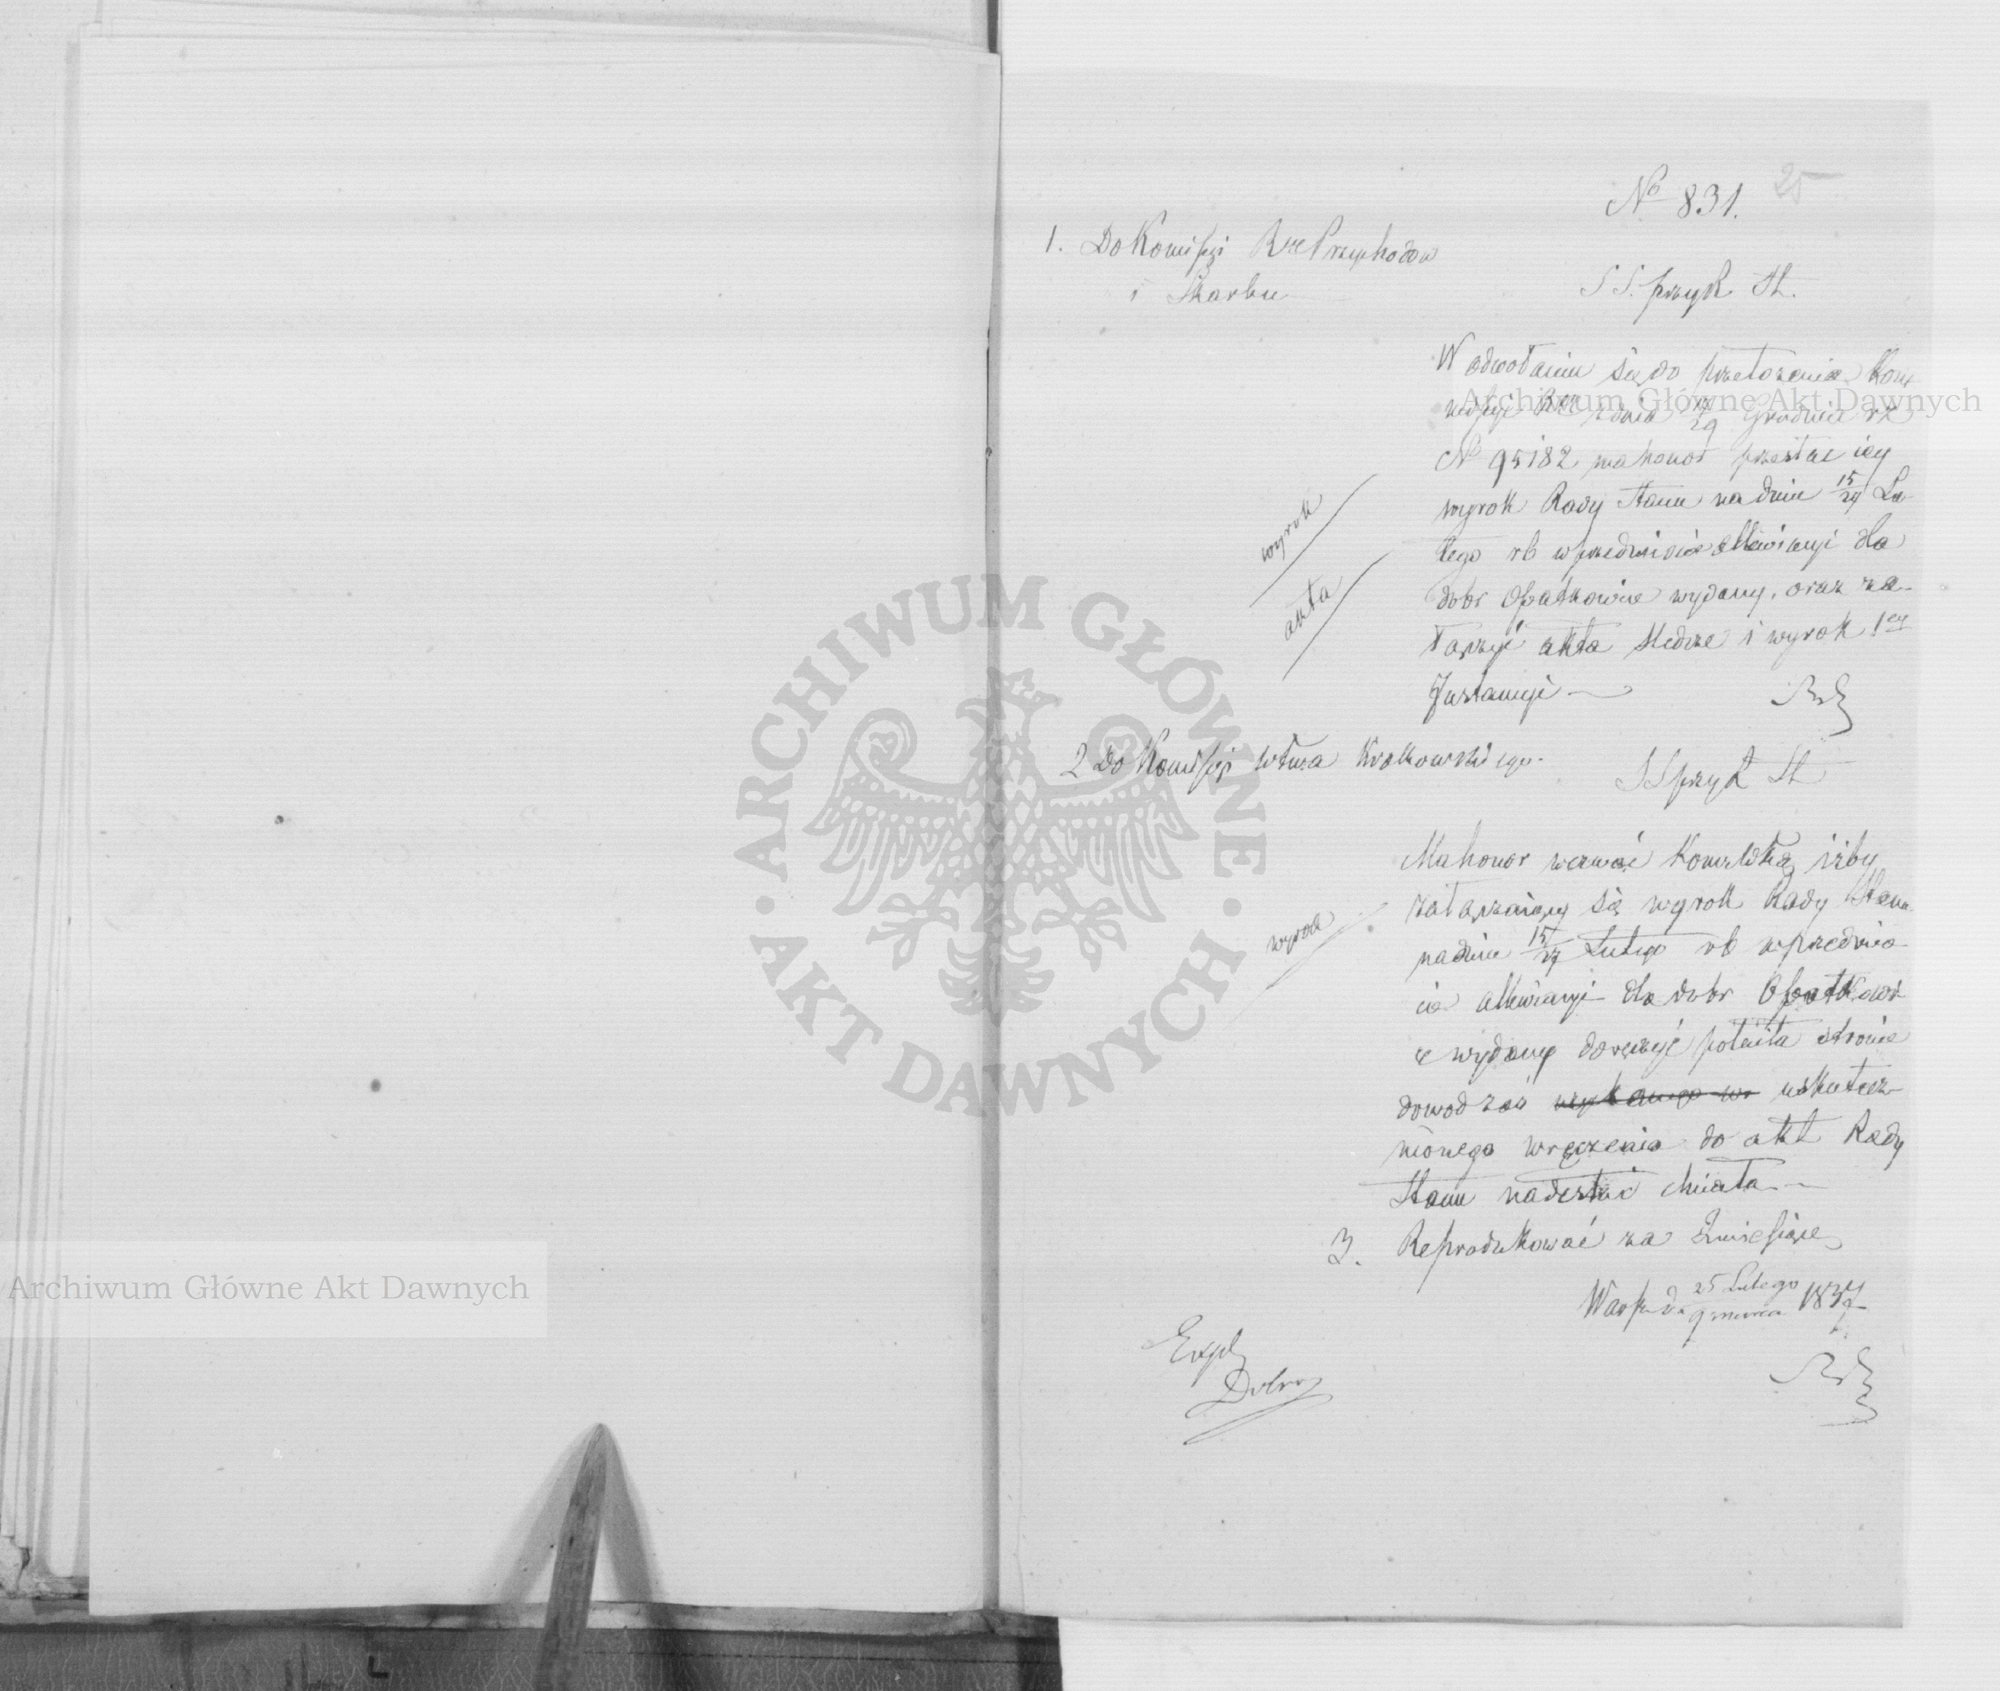 No 831.
25
1. Do Komissyi Rzej Przychodow
i Skarbu
S S. przy R. St.
W odwołaniu się do przełożenia Kom
missyi Rzej z dnia 17/29 Grudnia r z
No 95182 ma honor przesłac iey
wyrok Rady Stanu na dniu 15/27 Lu-
tego rb w przedmiocie allewiacyi dla
dobr Opatkowice wydany, oraz za-
łączyć akta śledcze i wyrok 1ey
Instancyi
wyrok
akta
2 Do Komissyi Wtwa Krakowskiego.
S S przy R St
Ma honor wezwać Kom. Wtką, iżby
załączaiący się wyrok Rady Stanu
na dniu 15/27 Lutego rb w przedmio-
cie allewiacyi dla dobr Opatkowi-
ce wydany doręczyć poleciła stronie
dowod zaś uskutecz-
nionego wręczenia do akt Rady
Stanu nadesłać chciała
wyrok
3. Reprodukować za 2 miesiące
Warsz. d. 25 Lutego / 9 marca 1837
Exped
Dobro
Archiwum Główne Akt Dawnych
Archiwum Główne Akt Dawnych
ARCHIWUM GŁÓWNE AKT DAWNYCH